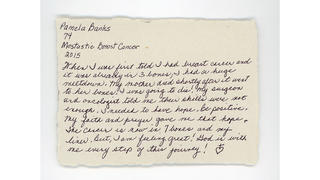 Pamela Banks
74
Mestastic Breast Cancer
2015
When I was first told I had breast cancer and
it was already in 3 bones, I had a huge
meltdown. My mother and shortly after it went
to her bones! I was going to die! My surgeon
and oncologist told me their skills were not
enough. I needed to have hope. Be positive.
My faith and prayer gave me that hope.
The cancer is now in 7 bones and my
liver. But, I am feeling great! God is with
me every step of this journey!